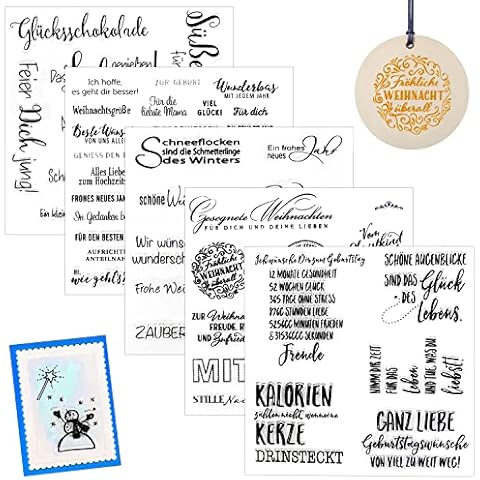 Glücksschokolade
Süße
für
genießen!
Feier Dich jung!
Das
Ein kleine
Ich hoffe,
es geht dir besser!
Weihnachtsgrüße
Beste Wünsche
VON UNS ALLEN
GENIESS DEN
Alles Liebe
zum Hochzeitstag
FROHES NEUES JAHR
In Gedanken bei
FÜR DEN BESTEN
AUFRICHTIGE
ANTEILNAHME
Hi,
wie geht's?
ZUR GEBURT
Für die
liebste Mama
Wunderbar
MIT JEDEM JAHR
VIEL
GLÜCK!
Für dich
Schneeflocken
sind die Schmetterlinge
des Winters
Ein frohes
neues Jahr
schöne
Wir wünschen
wunderschöne
Frohe Weihnachten
ZAUBER
Gesegnete Weihnachten
FÜR DICH UND DEINE LIEBEN
Fröhliche
WEIHNACHT
überall
ZUR Weihnacht
FREUDE,
und Zufriedenheit
MIT
STILLE
Vom
Fröhliche
WEIHNACHT
überall
Ich wünsche Dir zum Geburtstag
12 MONATE GESUNDHEIT
52 WOCHEN GLÜCK
365 TAGE OHNE STRESS
8760 STUNDEN LIEBE
525600 MINUTEN FRIEDEN
& 31536000 SEKUNDEN
Freude
KALORIEN
zählen nicht, wenn eine
KERZE
DRINSTECKT
SCHÖNE AUGENBLICKE
SIND DAS Glück
DES
Lebens.
NIMM DIR ZEIT
FÜR DAS
Leben
UND TUE, WAS DU
liebst!
GANZ LIEBE
Geburtstagswünsche
VON VIEL ZU WEIT WEG!